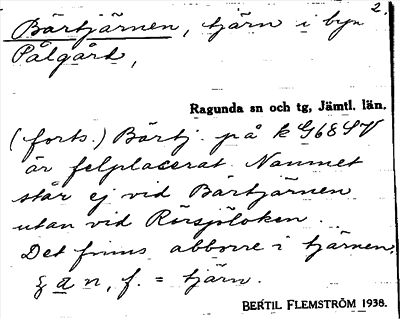 2.
Bärtjärnen, tjärn i byn
Pålgård,
Ragunda sn och tg, Jämtl. län.
(forts.) Bärtj. på k G68SV
är felplacerat. Namnet
står ej vid Bärtjärnen
utan vid Rörsjöloken.
Det finns abborre i tjärnen.
f. = tjärn.
BERTIL FLEMSTRÖM 1938.